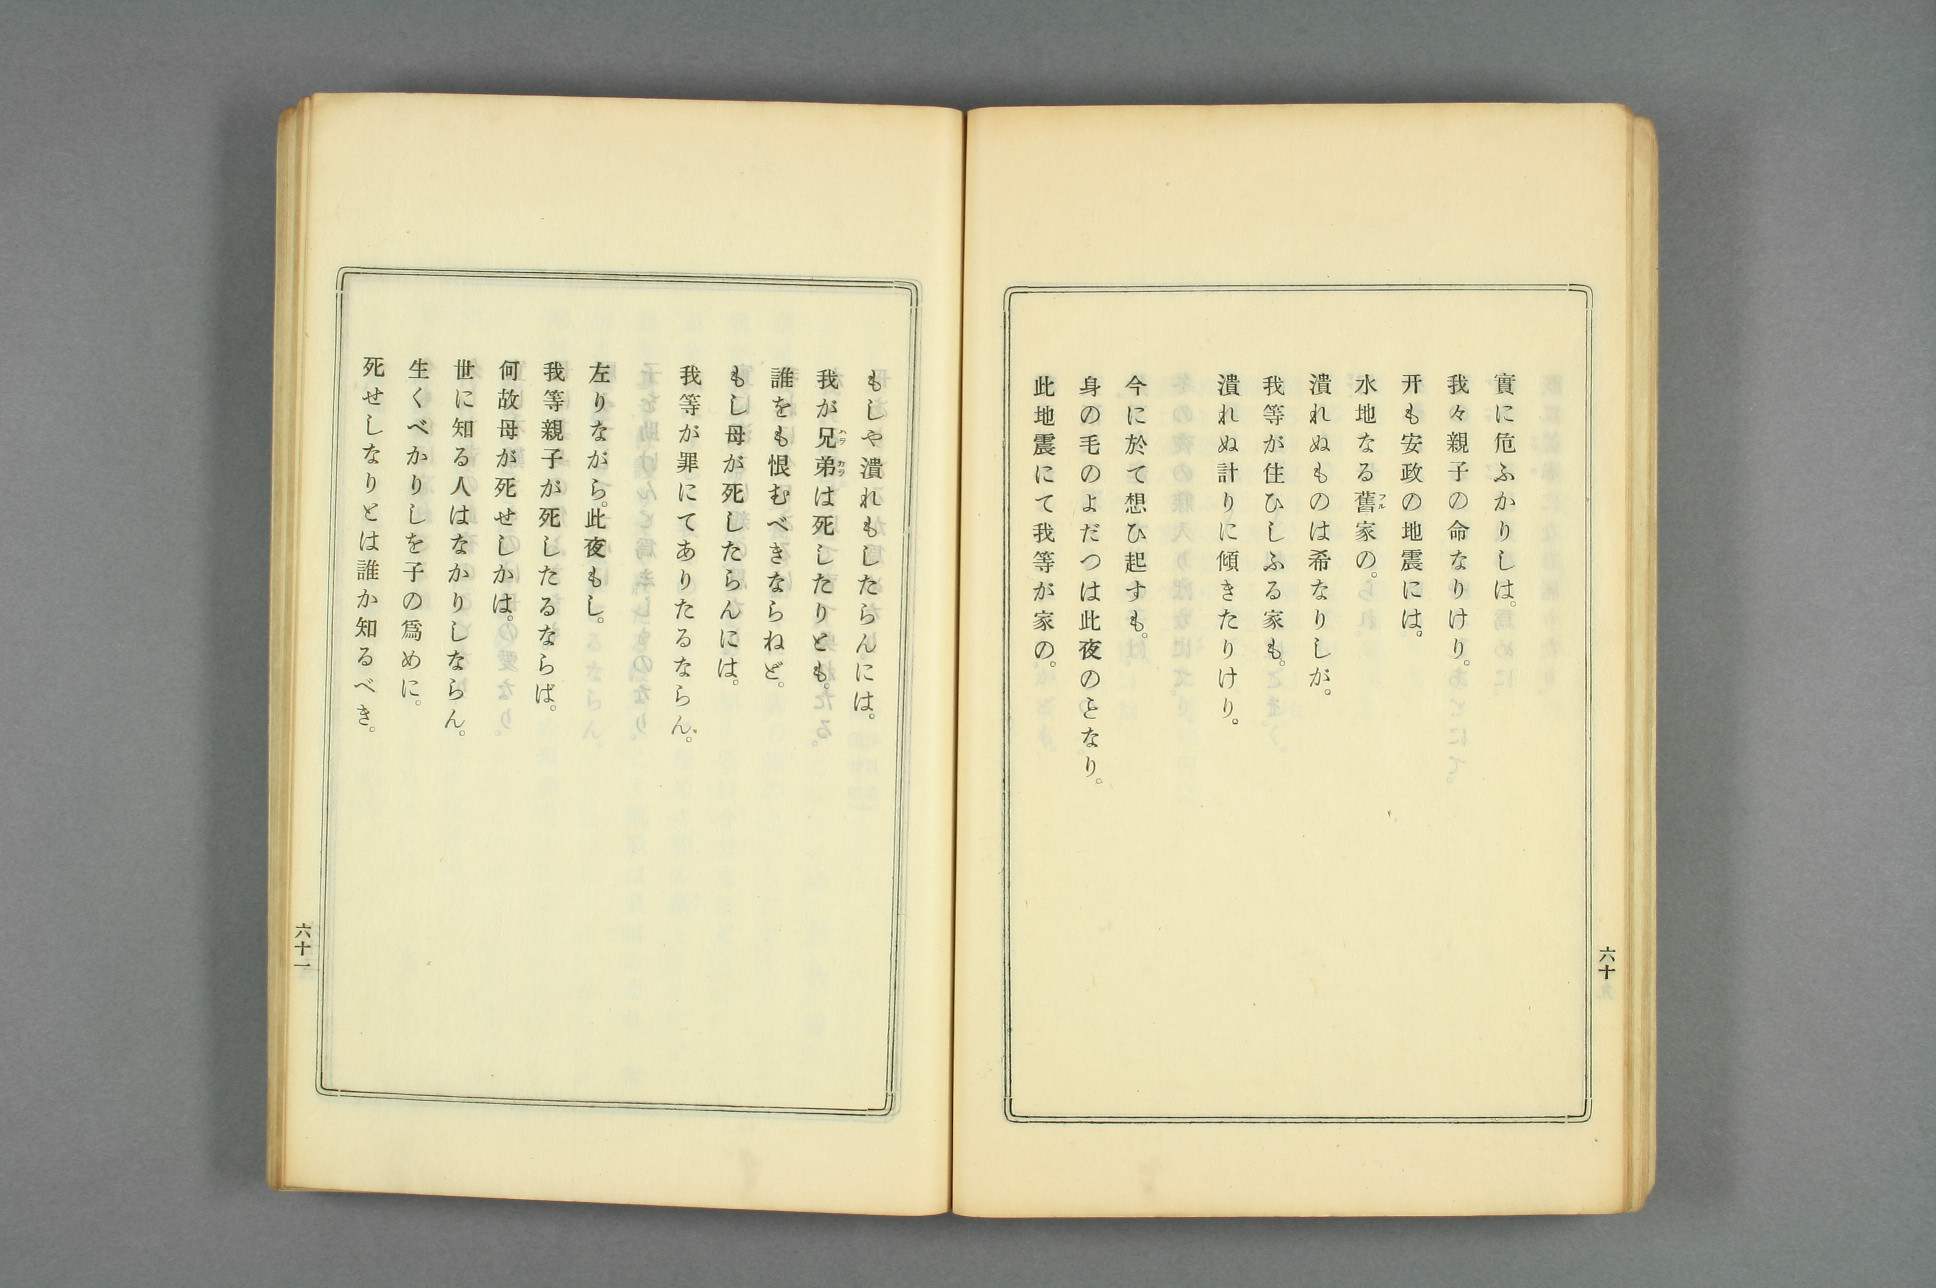 實に危ふかりしは。
我々親子の命なりけり。
开も安政の地震には。
水地なる舊家の。
潰れぬものは希なりしが。
我等が住ひしふる家も。
潰れぬ計りに傾きたりけり。
今に於て想ひ起すも。
身の毛のよだつは此夜のことなり。
此地震にて我等が家の。
六十
もしや潰れもしたらんには。
我が兄弟は死したりとも。
誰をも恨むべきならねど。
もし母が死したらんには。
我等が罪にてありたるならん。
左りながら。此夜もし。
我等親子が死したるならば。
何故母が死せしかは。
世に知る人はなかりしならん。
生くべかりしを子の爲めに。
死せしなりとは誰か知るべき。
六十一